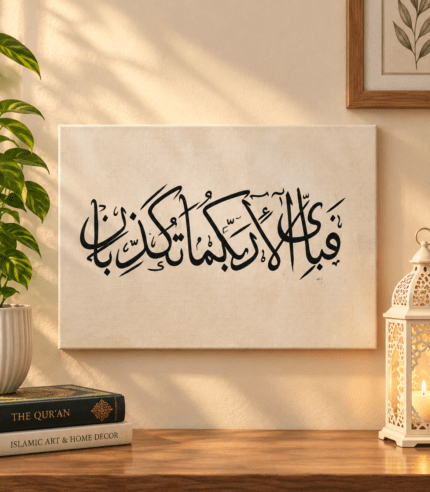 فَبِأَيِّ آلَاءِ رَبِّكُمَا تُكَذِّبَانِ
THE QUR'AN
ISLAMIC ART & HOME DECOR